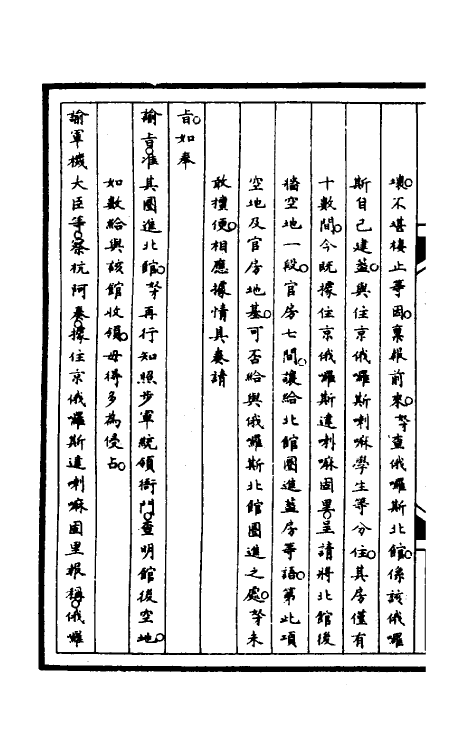 壞。不堪棲止等因。稟報前來。孥查俄囉斯北館。係該俄囉
斯自己建蓋。與住京俄囉斯喇嘛學生等分住。其房僅有
十數間。今既據住京俄囉斯達喇嘛固里呈請將北館後
牆空地一段。官房七間。讓給北館圈進蓋房等語。第此項
空地及官房地基。可否給與俄囉斯北館圈進之處。孥未
敢擅便。相應據情具奏請
旨。如奉
諭旨。准其圈進北館。孥再行知照步軍統領衙門。查明館後空地。
如數給與該館收領。毋得多為侵占。
諭軍機大臣等。察杭阿奏。據住京俄囉斯達喇嘛固里報稱。俄囉